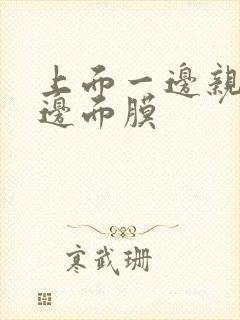 上而一邊親
邊而膜
寒武珊